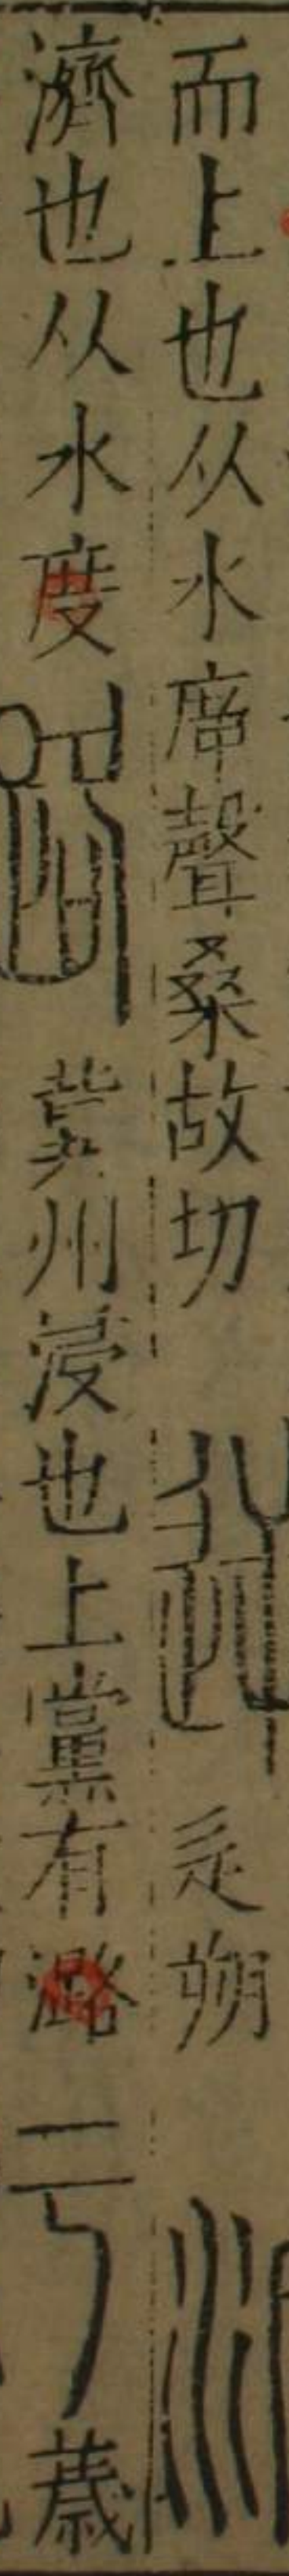 而上也从水㡿聲桑故切遡辵朔
濟也从水度冀州浸也上黨有潞